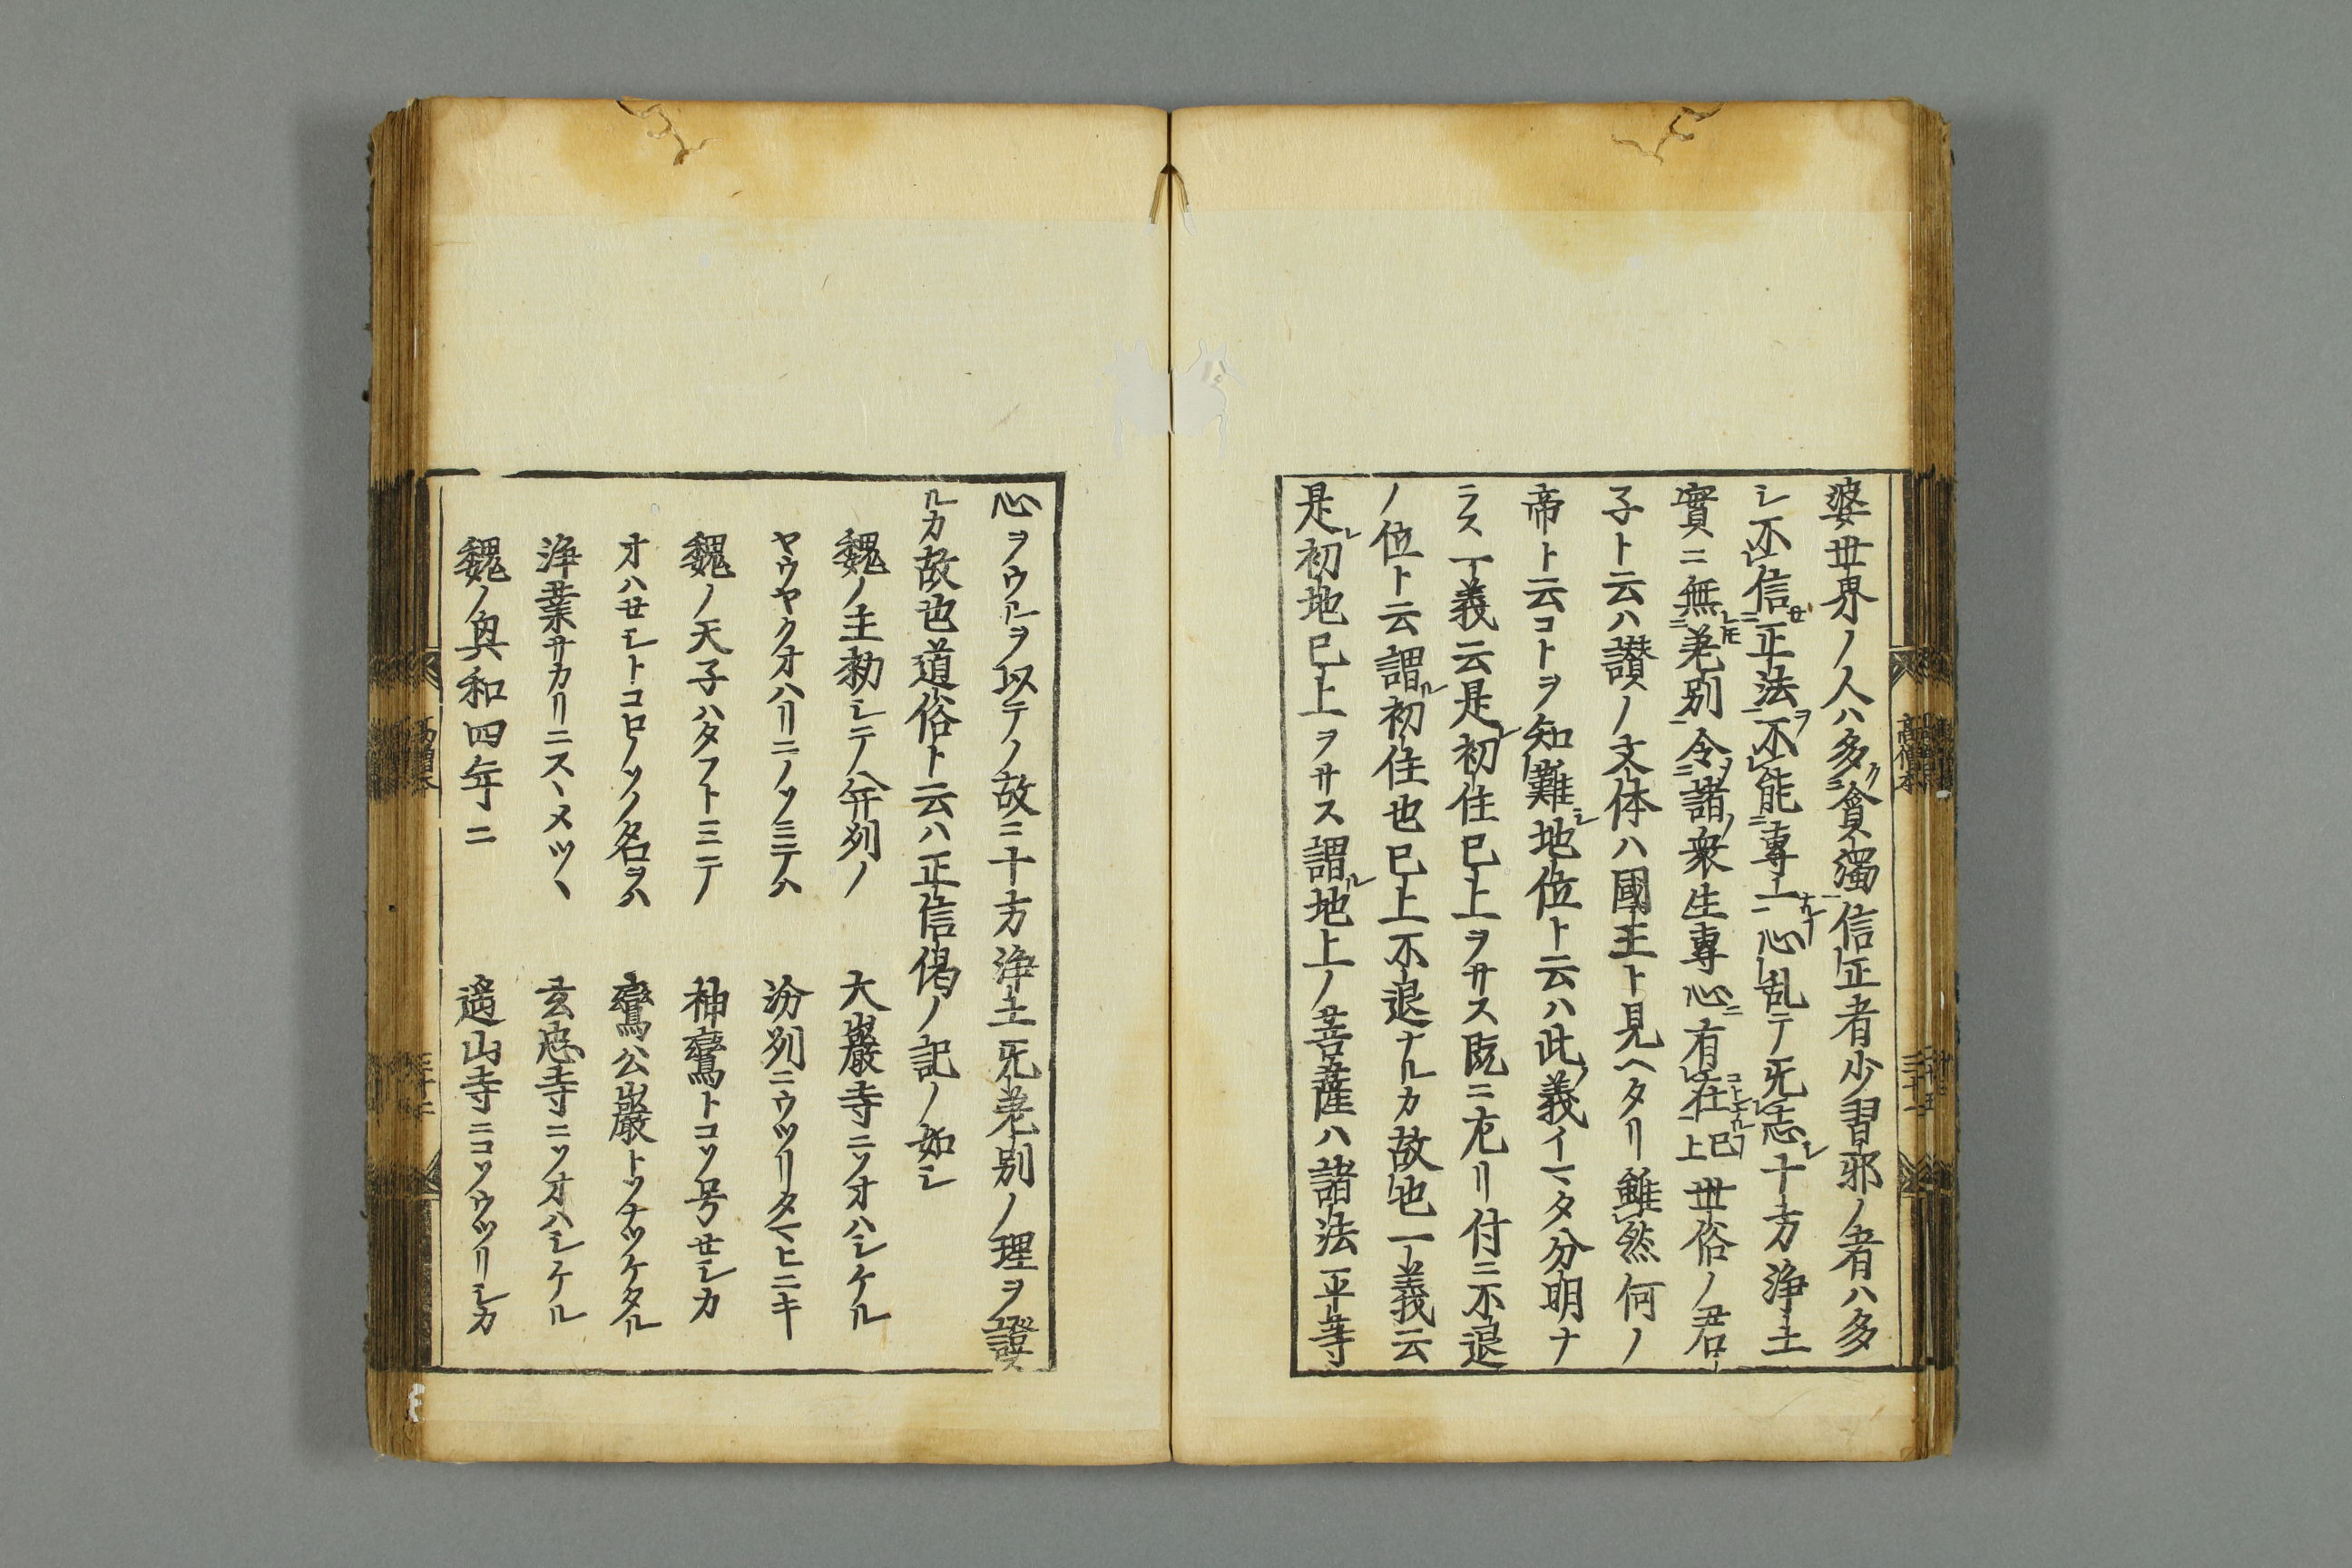 婆世界ノ人ハ多ク貪濁信正者少習邪ノ者ハ多
シ不信セ正法ヲ不能專一ナルコト心乱テ无志シ十方浄土
實ニ無レトモ差別令ヲ諸ノ衆生專心ニ有在コトナラ已上世俗ノ君
子ト云ハ讃ノ文体ハ國王ト見ヘタリ雖然何ノ
帝ト云コトヲ知難シ地位ト云ハ此ノ義イマタ分明ナ
ラス一義云是レ初住已上ヲサス既ニ尢リ付ニ不退
ノ位ト云謂ル初住也已上不退ナルカ故也一義云
是レ初地已上ヲサス謂ル地上ノ菩薩ハ諸法平等
心ヲウルヲ以テノ故ニ十方浄土无差別ノ理ヲ證ス
ルカ故也道俗ト云ハ正信偈ノ記ノ如シ
魏ノ主勅シテノ并列ノ 大巖寺ニソオハシケル
ヤウヤクオハリニノソミテハ 汾列ニウツリタマヒニキ
魏ノ天子ハタフトミテ 神鸞トコソ号セシカ
オハセシトコロノソノ名ヲハ 鸞公巖トソナツケタル
浄業サカリニスヽメツヽ 玄忠寺ニソオハシケル
魏ノ興和四年ニ 遥山寺ニコソウツリシカ
高僧本
三十一